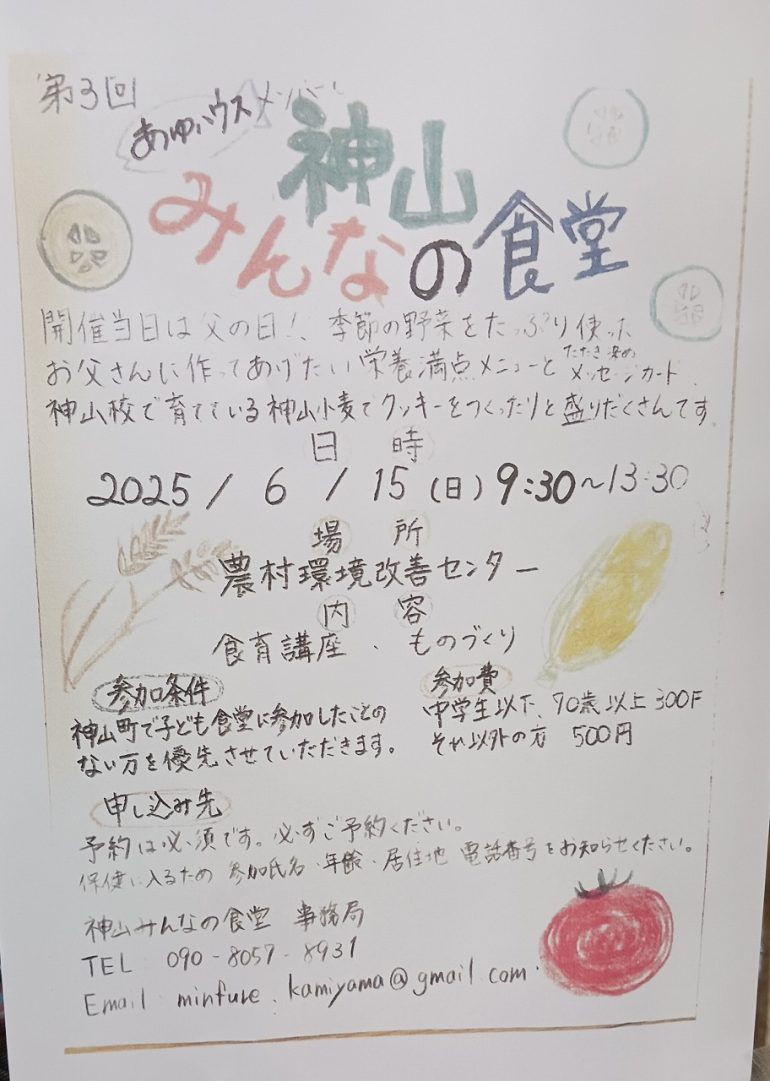 第3回
あゆハウスメンバー
神山
みんなの食堂
開催当日は父の日!、季節の野菜をたっぷり使った
お父さんに作ってあげたい栄養満点メニューと たたき染めメッセージカード、
神山校で育てている神山小麦でクッキーをつくったりと盛りだくさんです。
日時
2025/6/15(日)9:30~13:30
場所
農村環境改善センター
内容
食育講座・ものづくり
参加条件
神山町で子ども食堂に参加したことの
ない方を優先させていただきます。
参加費
中学生以下、70歳以上 300円
それ以外の方 500円
申し込み先
予約は必須です。必ずご予約ください。
保健に入るため 参加氏名・年齢・居住地 電話番号をお知らせください。
神山みんなの食堂 事務局
TEL 090-8057-8931
Email minfure.kamiyama@gmail.com